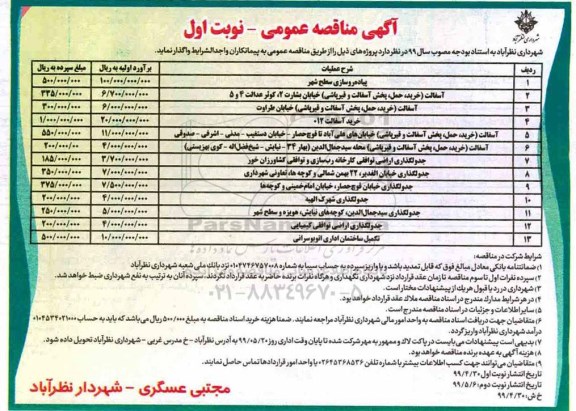 آگهی مناقصه عمومی - نوبت اول
شهرداری نظرآباد
شهرداری نظرآباد به استناد بودجه مصوب سال ۹۹ در نظر دارد پروژه های ذیل را از طریق مناقصه عمومی به پیمانکاران واجدالشرایط واگذار نماید.
ردیف شرح عملیات برآورد اولیه به ریال مبلغ سپرده به ریال
۱ پیاده‌روسازی سطح شهر ۱۰/۰۰۰/۰۰۰/۰۰۰ ۵۰۰/۰۰۰/۰۰۰
۲ آسفالت (خرید، حمل، پخش آسفالت و قیرپاشی) خیابان بشارت ۲، کوثر عدالت ۴ و ۵ ۶/۷۰۰/۰۰۰/۰۰۰ ۳۳۵/۰۰۰/۰۰۰
۳ آسفالت (خرید، حمل، پخش آسفالت و قیرپاشی) خیابان طراوت ۶/۰۰۰/۰۰۰/۰۰۰ ۳۰۰/۰۰۰/۰۰۰
۴ خرید آسفالت ۱۲-۰ ۲۰/۰۰۰/۰۰۰/۰۰۰ ۱/۰۰۰/۰۰۰/۰۰۰
۵ آسفالت (خرید، حمل، پخش آسفالت و قیرپاشی) خیابان‌های ملی آباد تا قوچ‌حصار - خیابان دستغیب - مدنی - اشرفی - صدوقی ۱۱/۰۰۰/۰۰۰/۰۰۰ ۵۵۰/۰۰۰/۰۰۰
۶ آسفالت (خرید، حمل، پخش آسفالت و قیرپاشی) محله سیدجمال‌الدین (بهار ۳۴ - نیایش - شیخ‌فضل‌اله - کوی بهزیستی) ۴/۰۰۰/۰۰۰/۰۰۰ ۲۰۰/۰۰۰/۰۰۰
۷ جدولگذاری اراضی توافقی کارخانه رب‌سازی و توافقی کشاورزان خور ۳/۷۰۰/۰۰۰/۰۰۰ ۱۸۵/۰۰۰/۰۰۰
۸ جدولگذاری خیابان الغدیر، ۲۲ بهمن شمالی و کوچه ها، تعاونی شهرداری ۷/۰۰۰/۰۰۰/۰۰۰ ۳۵۰/۰۰۰/۰۰۰
۹ جدولگذاری خیابان قوچ‌حصار، خیابان امام‌خمینی و کوچه‌ها ۷/۵۰۰/۰۰۰/۰۰۰ ۳۷۵/۰۰۰/۰۰۰
۱۰ جدولگذاری شهرک الهیه ۴/۰۰۰/۰۰۰/۰۰۰ ۲۰۰/۰۰۰/۰۰۰
۱۱ جدولگذاری سیدجمال‌الدین، کوچه‌های نیایش، هویزه و سطح شهر ۵/۰۰۰/۰۰۰/۰۰۰ ۲۵۰/۰۰۰/۰۰۰
۱۲ جدولگذاری اراضی توافقی ۴/۰۰۰/۰۰۰/۰۰۰ ۲۰۰/۰۰۰/۰۰۰
۱۳ تکمیل ساختمان اداری اتوبوسرانی ۱۰/۰۰۰/۰۰۰/۰۰۰ ۵۰۰/۰۰۰/۰۰۰
شرایط شرکت در مناقصه:
۱) ضمانتنامه بانکی معادل مبالغ فوق که قابل تمدید باشد و یا واریز سپرده به حساب سیبا به شماره ۰۱۰۴۷۴۶۷۵۷۰۰۸ نزد بانک ملی شعبه شهرداری نظرآباد
۲) سپرده نفرات اول تا سوم مناقصه تا زمان عقد قرارداد نزد شهرداری نگهداری و هرگاه نفرات برنده حاضر به عقد قرارداد نگردند، سپرده آنان به ترتیب به نفع شهرداری ضبط خواهد شد.
۳) شهرداری در رد یا قبول هر یک از پیشنهادات مختار است.
۴) در هر شرایط مدارک مندرج در اسناد مناقصه ملاک عقد قرارداد خواهد بود.
۵) سایر اطلاعات و جزئیات در اسناد مناقصه مندرج است.
۶) متقاضیان جهت دریافت اسناد مناقصه به واحد امور مالی شهرداری نظرآباد مراجعه نمایند. ضمنا هزینه خرید اسناد مناقصه به مبلغ ۵۰۰/۰۰۰ ریال می‌باشد که باید به حساب ۰۱۰۴۵۳۴۰۲۱۰۰۰
درآمد شهرداری نظرآباد واریز گردد.
۷) بدیهی است پیشنهادات می‌بایست در پاکت لاک و ممهور به مهر شرکت شده تا پایان وقت اداری روز ۹۹/۰۵/۲۰ به آدرس نظرآباد - خ مدرس غربی - شهرداری نظرآباد تحویل داده شود.
۸) هزینه آگهی به عهده برنده مناقصه خواهد بود.
۹) متقاضیان می‌توانند جهت کسب اطلاعات بیشتر با شماره تلفن ۰۲۶۴۵۳۶۸۵۳۶ با واحد امور قراردادها تماس حاصل نمایند.
تاریخ انتشار نوبت اول: ۹۹/۴/۳۰
تاریخ انتشار نوبت دوم: ۹۹/۵/۶
خ ش: ۹۹/۴/۳۰
مجتبی عسگری - شهردار نظرآباد
ParsNamadData
۰۲۱-۸۸۳۴۹۶۷۰-۵